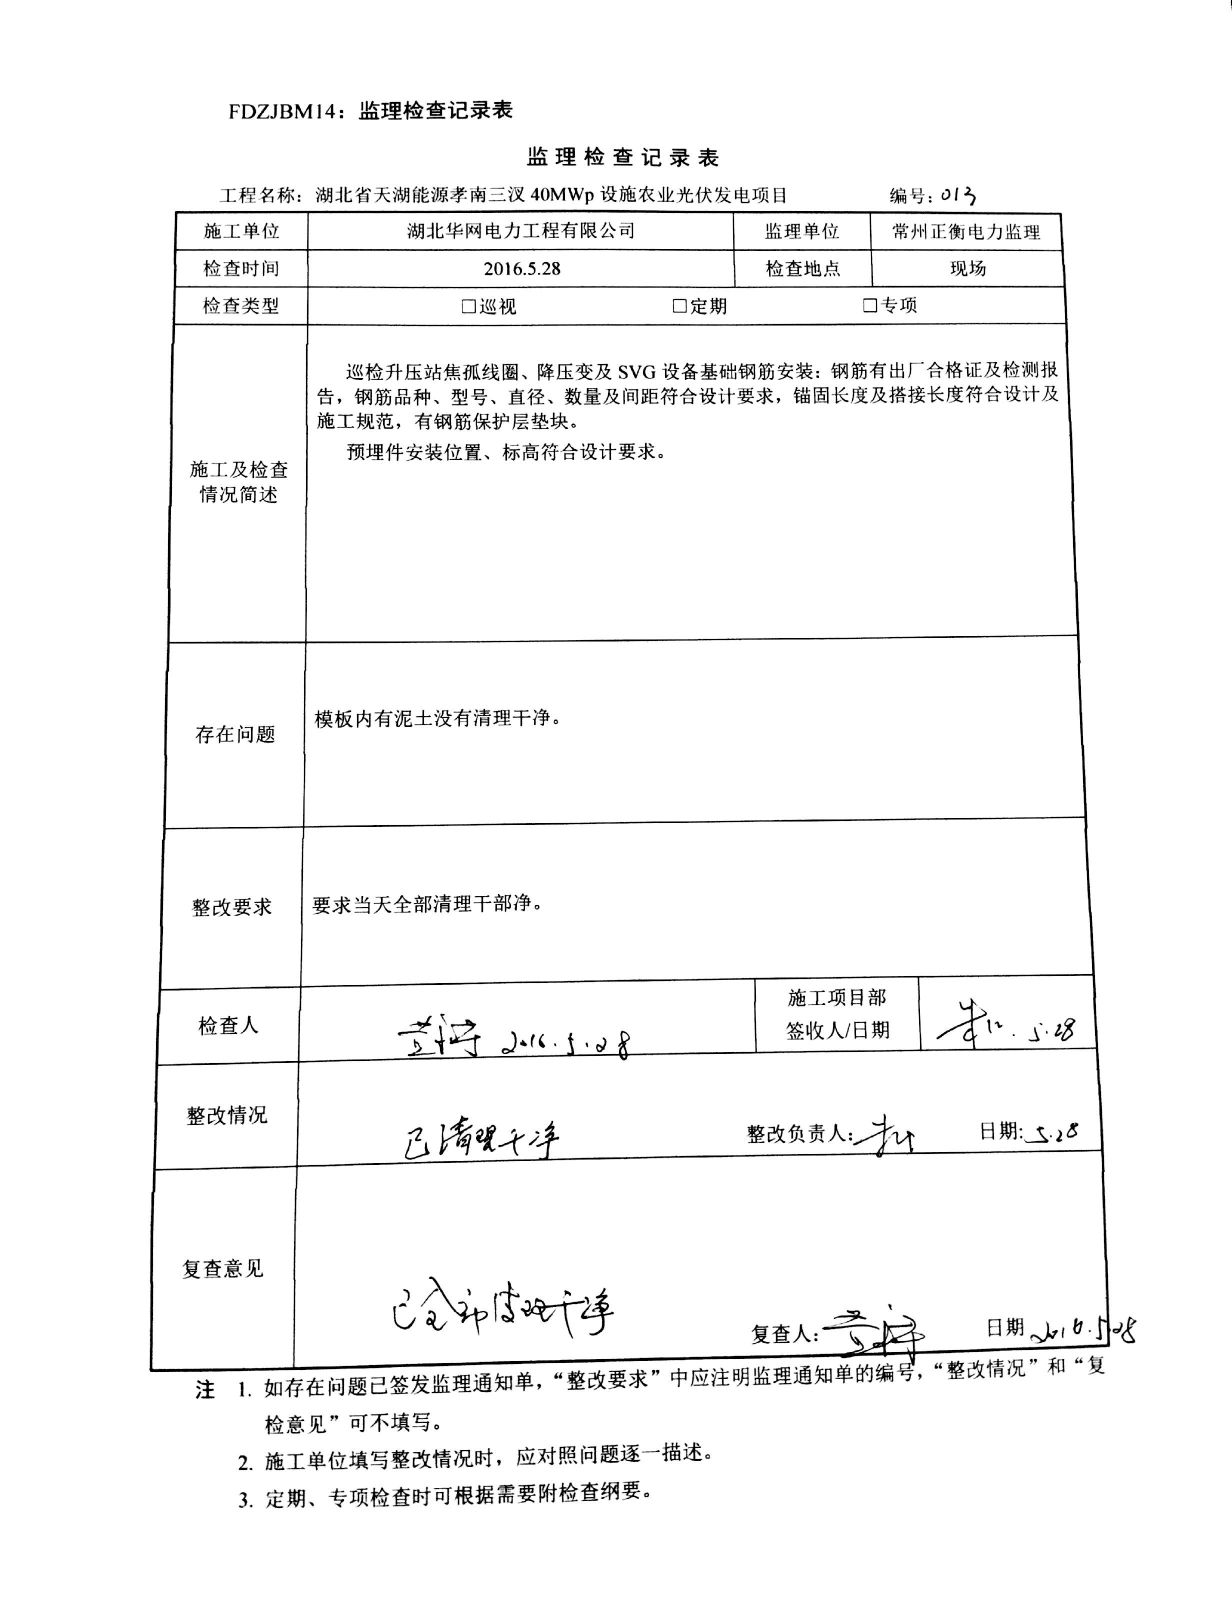 FDZJBM14：监理检查记录表
监理检查记录表
工程名称：湖北省天湖能源孝南三汊 40MWp 设施农业光伏发电项目 编号：013
施工单位 湖北华网电力工程有限公司 监理单位 常州正衡电力监理
检查时间 2016.5.28 检查地点 现场
检查类型 □巡视 □定期 □专项
巡检升压站焦孤线圈、降压变及 SVG 设备基础钢筋安装：钢筋有出厂合格证及检测报
告，钢筋品种、型号、直径、数量及间距符合设计要求，锚固长度及搭接长度符合设计及
施工规范，有钢筋保护层垫块。
预埋件安装位置、标高符合设计要求。
施工及检查
情况简述
存在问题 模板内有泥土没有清理干净。
整改要求 要求当天全部清理干部净。
检查人 2016.5.28 施工项目部
签收人/日期 5.28
整改情况 已清理干净 整改负责人： 日期：5.28
复查意见 已全部清理干净 复查人： 日期 2016.5.28
注 1. 如存在问题已签发监理通知单，“整改要求”中应注明监理通知单的编号，“整改情况”和“复
检意见”可不填写。
2. 施工单位填写整改情况时，应对照问题逐一描述。
3. 定期、专项检查时可根据需要附检查纲要。